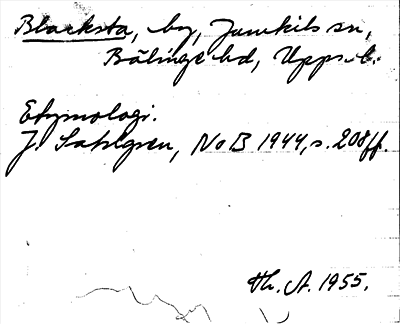 Blacksta, by, Jumkils sn,
Bälinge hd, Upps. l.
Etymologi.
J. Sahlgren, NoB 1944, s. 208ff.
Th. A. 1955.